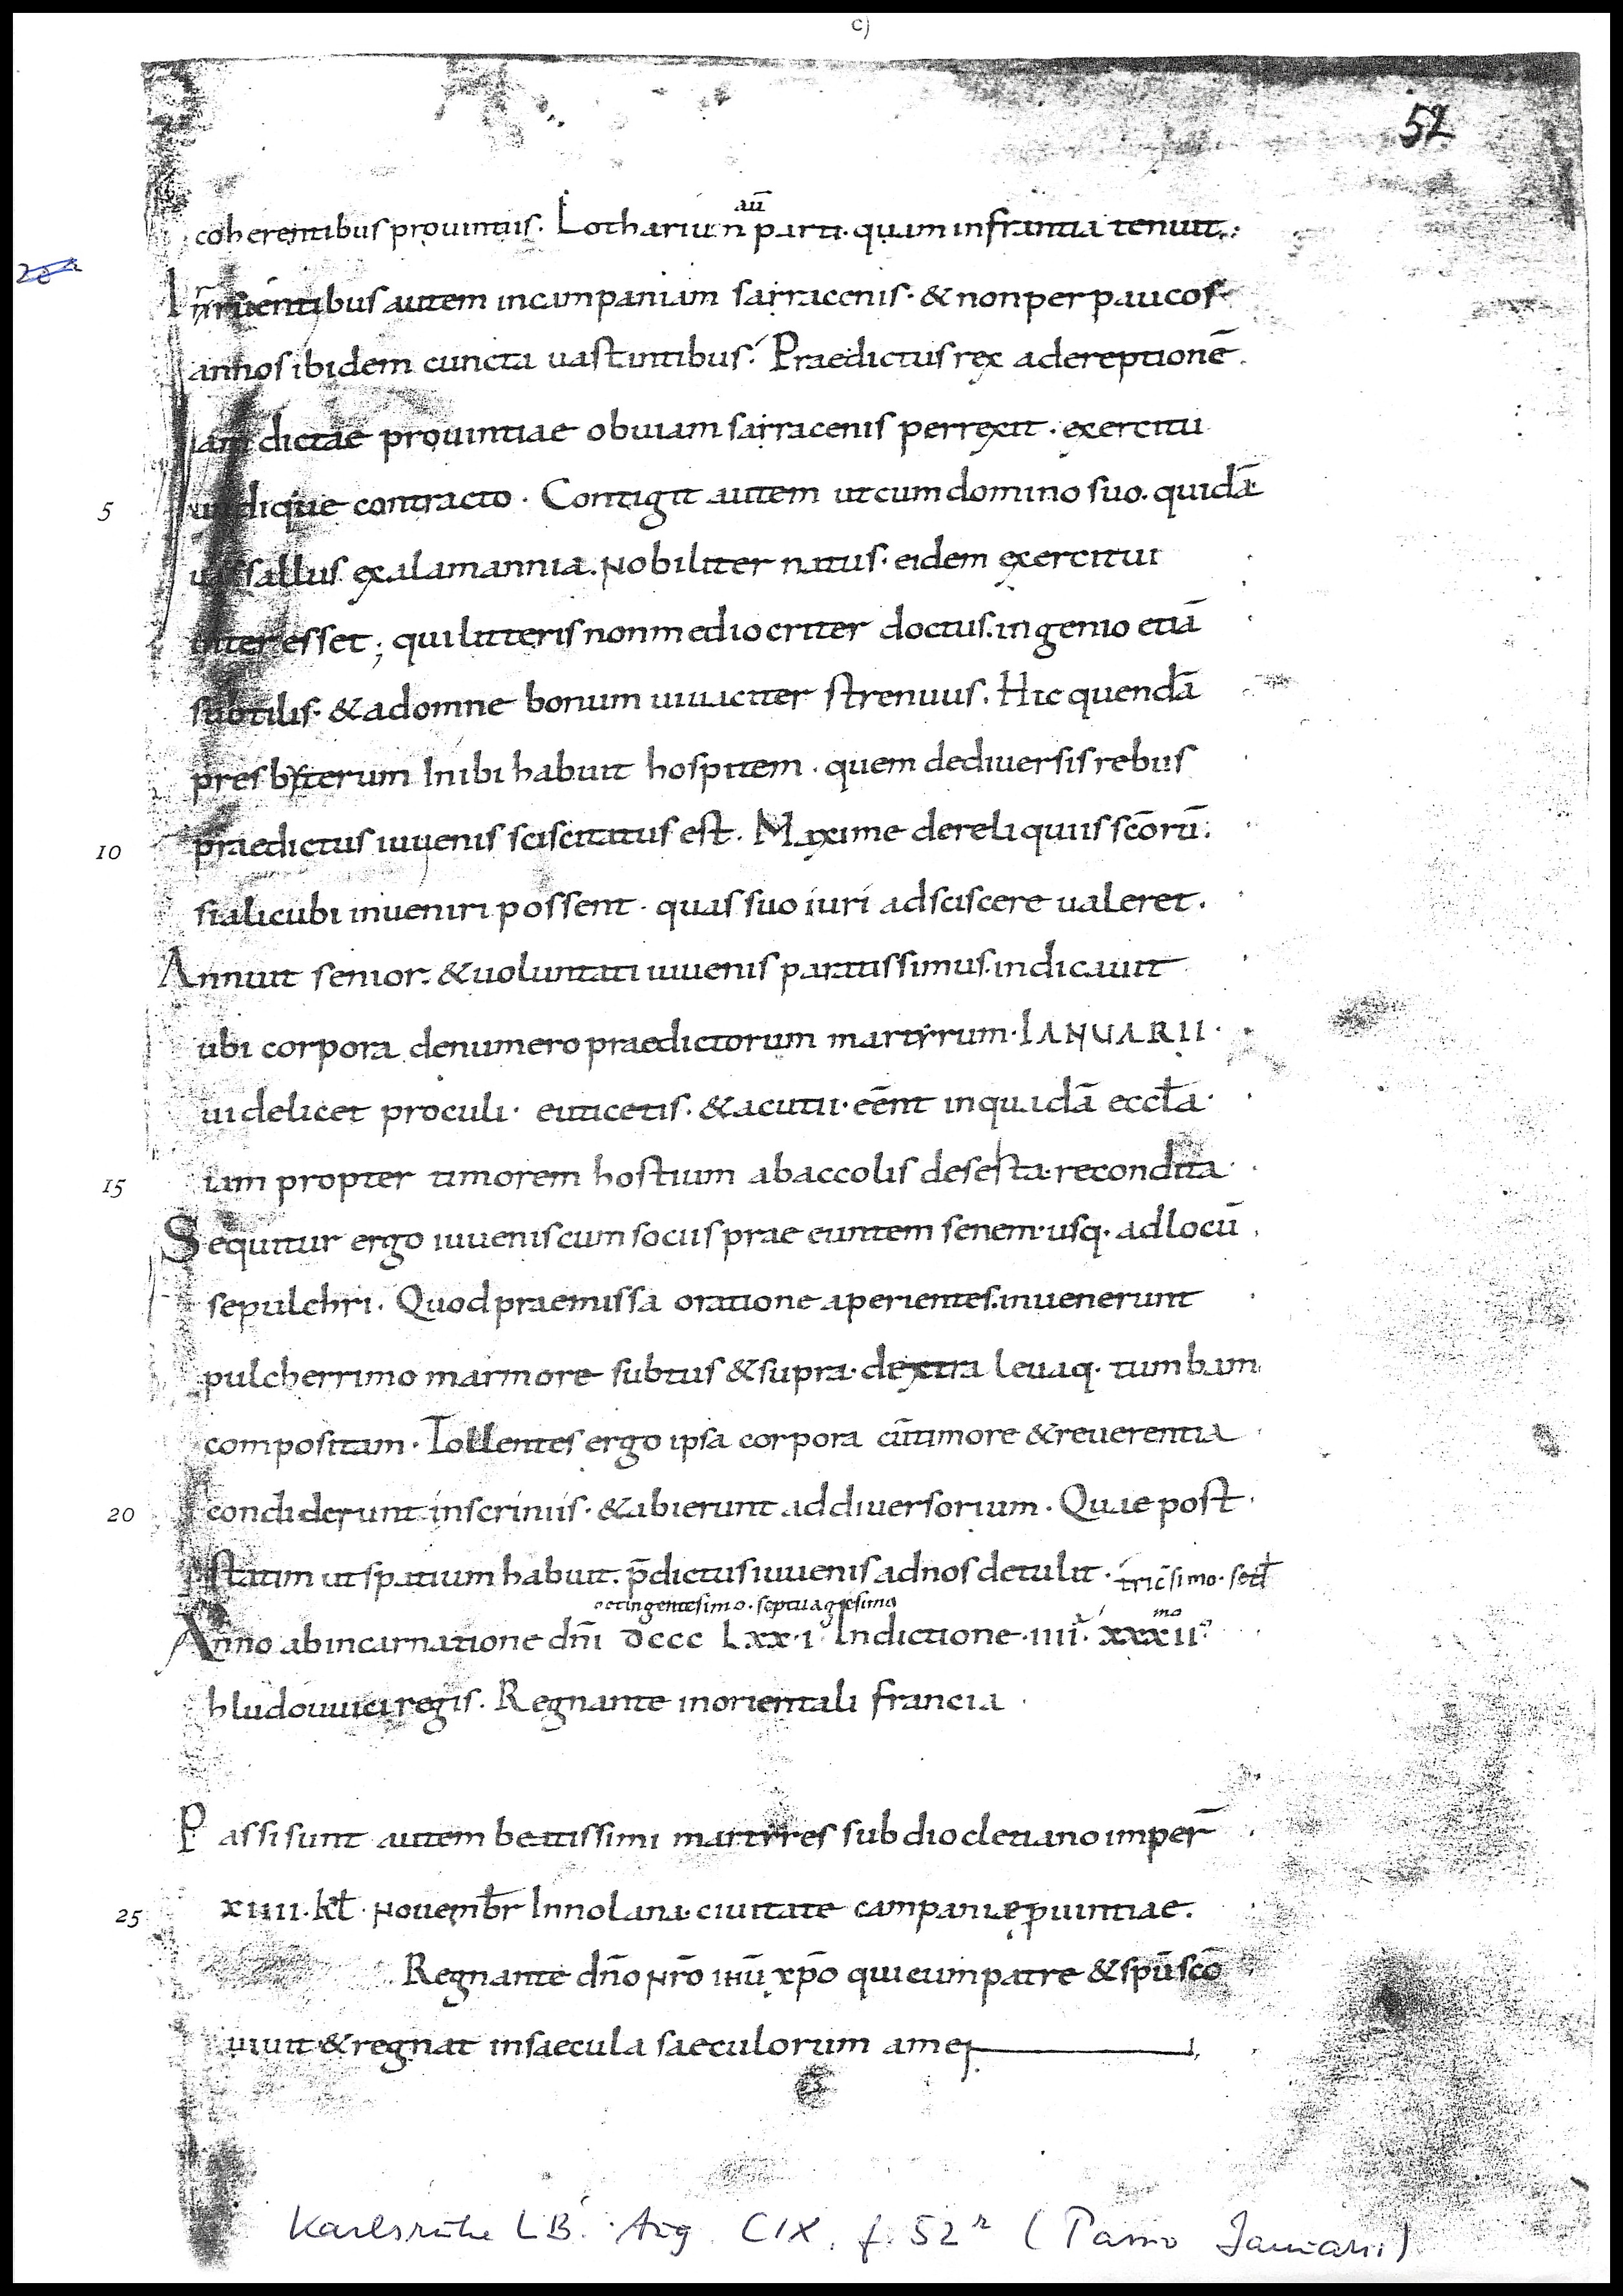 c)
52
coherentibus prouintiis. Lotharium aū parti. quam infrantia tenuit.:
Inruentibus autem incampaniam sarracenis. & nonperpaucos
annos ibidem cuncta uastantibus. Praedictus rex adereptionē.
iam dictae prouintiae obuiam sarracenis perrexit. exercitu
5 undique contracto. Contigit autem utcum domino suo. quidā
uassallus exalamannia. Nobiliter natus. eidem exercitui
interesset; qui litteris nonmediocriter doctus. ingenio etiā
subtilis. & adomne bonum uiuaciter strenuus. Hic quendā
presbyterum Inibi habuit hospitem. quem dediuersis rebus
10 praedictus iuuenis sciscitatus est. Maxime dereliquiis scōrū.
sialicubi inueniri possent. quas suo iuri adsciscere ualeret.
Annuit senior. & uoluntati iuuenis paratissimus. indicauit
ubi corpora denumero praedictorum martyrum. IANUARII.
uidelicet proculi. euticetis. & acutii. eēnt inquadā eccl̄a.
15 iam propter timorem hostium abaccolis deserta. recondita.
Sequitur ergo iuuenis cum sociis prae euntem senem. usq. adlocū
sepulchri. Quod praemissa oratione aperientes. inuenerunt
pulcherrimo marmore subtus & supra. dextra leuaq. tumbam
compositam. Tollentes ergo ipsa corpora cūtimore & reuerentia
20 condiderunt inscriniis. & abierunt addiuersorium. Quae post
statim utspatium habuit. p̄dictus iuuenis adnos detulit.
octingentesimo. septuagesimo
Anno abincarnatione dn̄i dccc Lxx.i Indictione. iiii. xxxii
hludouuici regis. Regnante inorientali francia.
Passi sunt autem beatissimi martyres sub diocletiano imper̄
25 xiiii. kł. Novemb̄r Innolana. ciuitate campaniae puintiae.
Regnante dn̄o Nr̄o ihū xp̄o qui cum patre & sp̄u scō
uiuit & regnat insaecula saeculorum amen
Karlsruhe LB. Aug. CIX. f. 52r (Passio Januarii)